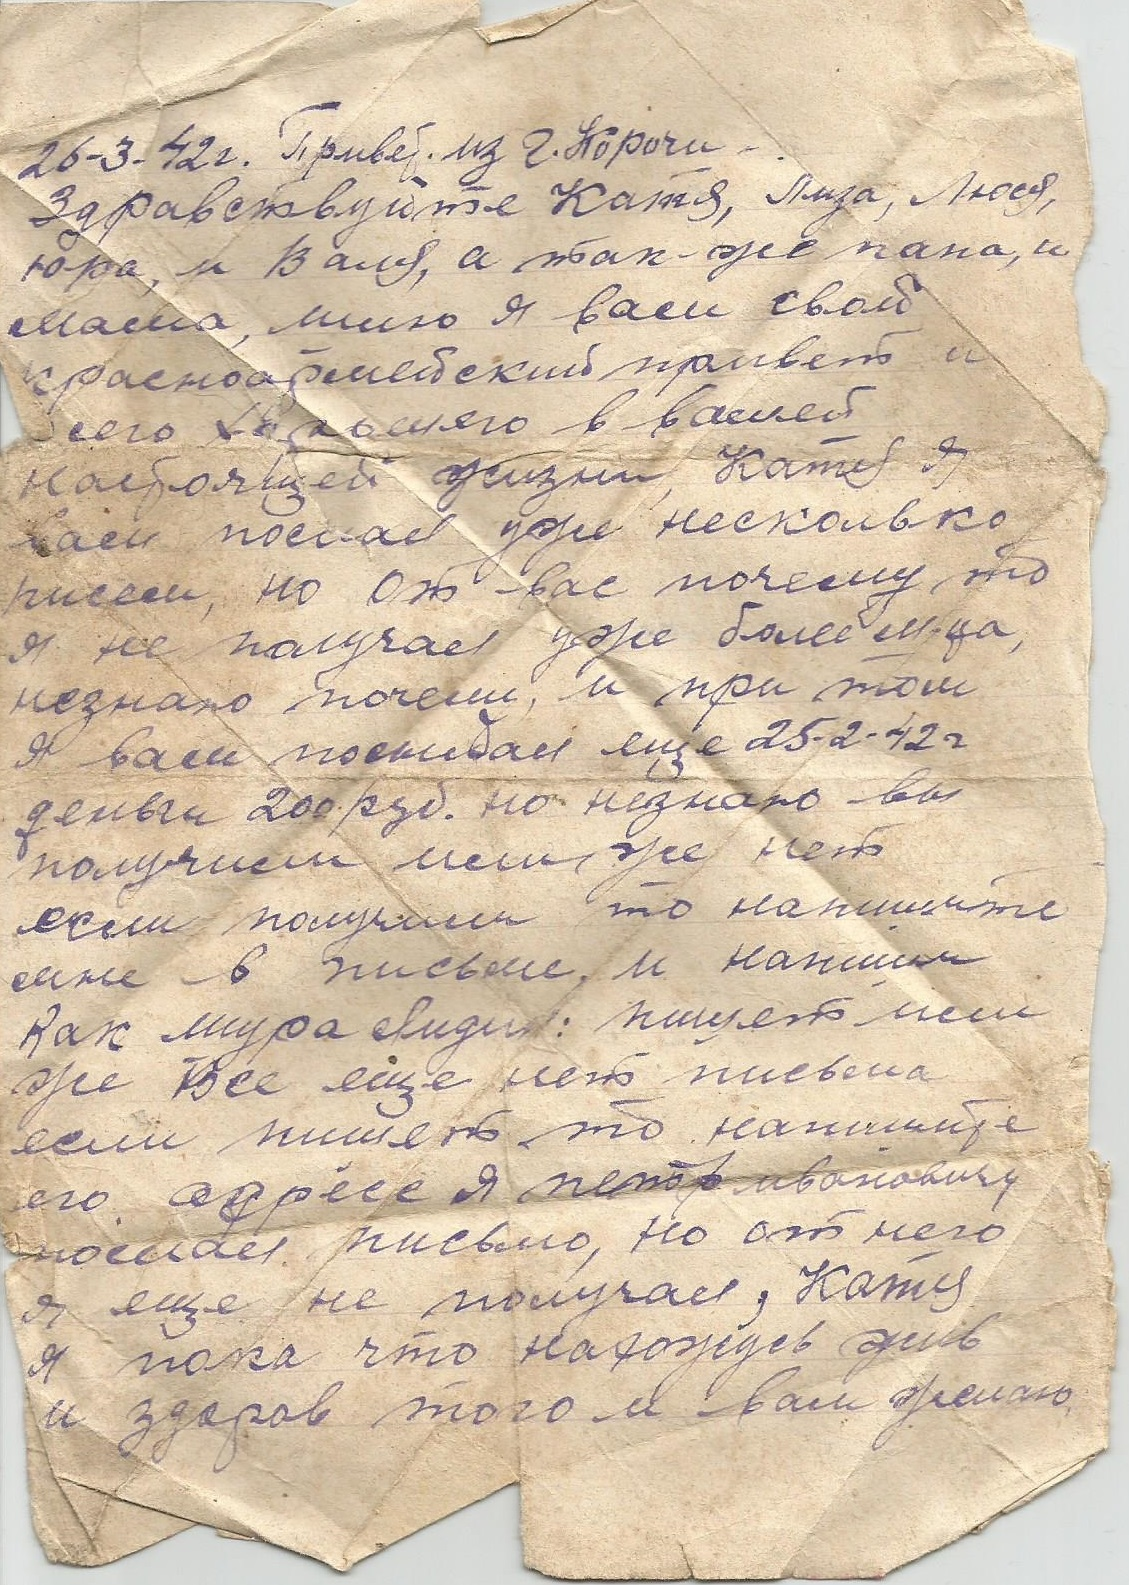 26-3-42г. Привет из г. Корочи -.
Здравствуйте Катя, Лиза, Люся,
Юра, и Валя, а так-же папа, и
мама, шлю я вам свой
красноармейский привет и
всего хорошего в вашей
настоящей жизни, Катя я
вам послал уже несколько
писем, но от вас почему то
я не получал уже более м-ца,
незнаю почему, и при том
я вам посылал еще 25-2-42г
деньги 200 руб. но незнаю вы
получили или же нет
если получили то напишите
мне в письме, и напиши
Как шура пишет или
же Все еще нет письма
если пишет то напишите
его адрес я петр ивановичу
послал письмо, но от него
я еще не получал, Катя
я пока что нахожусь жив
и здоров того и вам желаю